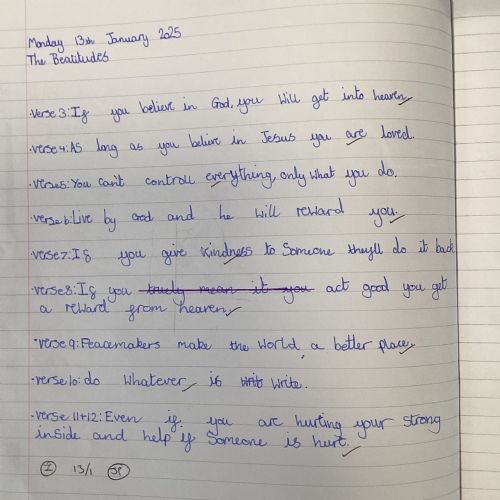 Monday 13th January 2025
The Beatitudes
·verse 3: If you believe in God, you will get into heaven
·verse 4: AS long as you belive in Jesus you are loved.
·verse 5: You can't controll everything, only what you do.
·verse 6: Live by God and he will reward you.
·verse 7: If you give kindness to Someone they'll do it back
·verse 8: If you truely mean it you act good you get
a reward from heaven
·verse 9: Peacemakers make the World, a better place,
·verse 10: do whatever is write.
·verse 11+12: Even if you are hurting your strong
inside and help if Someone is hurt.
I 13/1